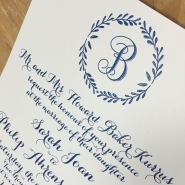 B
Mr. and Mrs. Howard Baker Kurrus
request the honour of your presence
at the marriage of their daughter
Sarah Joan
to
Philip Ahrens